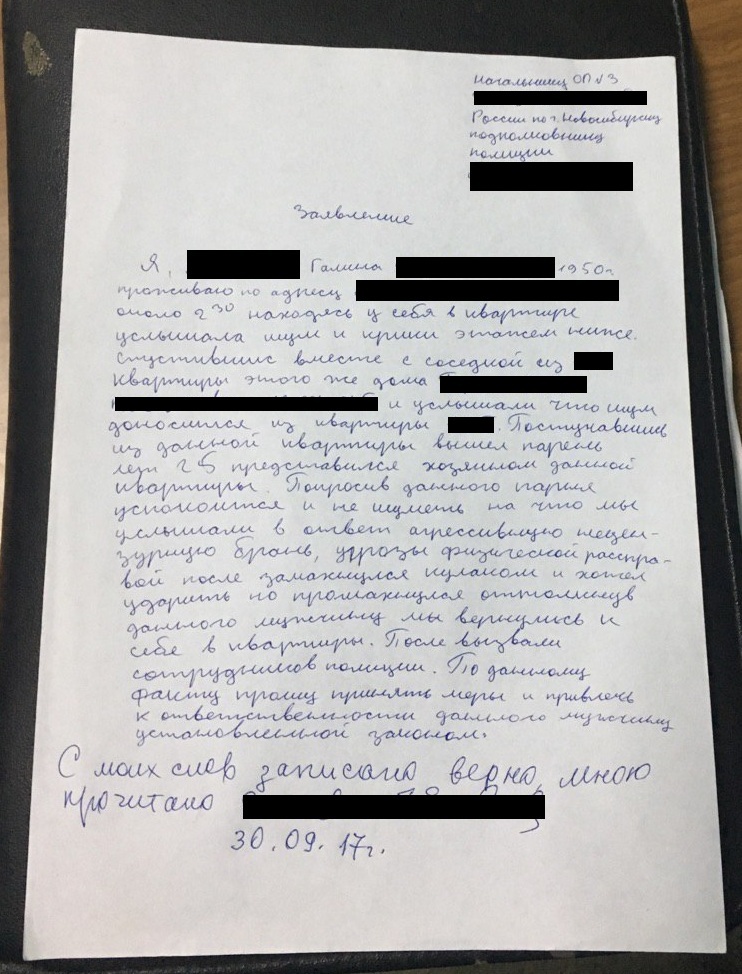 Начальнику ОП №3
России по г. Новосибирску
подполковнику
полиции
Заявление
Я, Галина 1950г
проживаю по адресу
около 2³⁰ находясь у себя в квартире
услышала шум и крики этажем ниже.
Спустившись вместе с соседкой из
квартиры этого же дома
и услышали что шум
доносится из квартиры . Постучавшись
из данной квартиры вышел парень
лет 25 представился хозяином данной
квартиры. Попросив данного парня
успокоится и не шуметь на что мы
услышали в ответ агрессивную нецен-
зурную брань, угрозы физической распра-
вой после замахнулся кулаком и хотел
ударить но промахнулся оттолкнув
данного мужчину мы вернулись к
себе в квартиры. После вызвали
сотрудников полиции. По данному
факту прошу принять меры и привлечь
к ответственности данного мужчину
установленной законом.
С моих слов записано верно, мною
прочитано
30.09.17г.